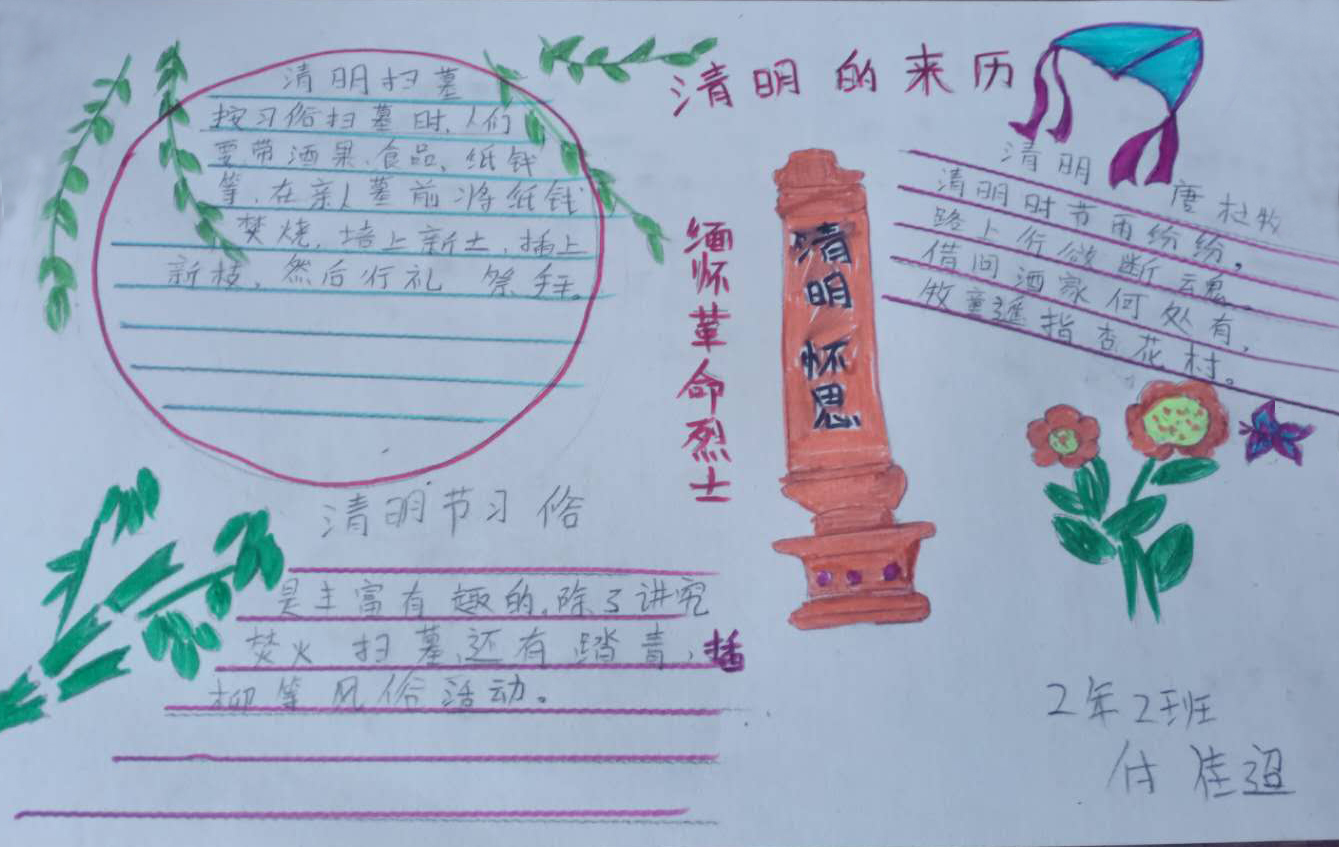 清明的来历
清明扫墓
按习俗扫墓时、人们
要带酒果、食品、纸钱
等、在亲人墓前将纸钱
焚烧,培上新土,插上
新枝,然后行礼 祭拜。
清明 唐 杜牧
清明时节雨纷纷,
路上行人欲断魂。
借问酒家何处有,
牧童遥指杏花村。
缅怀革命烈士
清明怀思
清明节习俗
是丰富有趣的,除了讲究
焚火 扫墓,还有踏青,插
柳等风俗活动。
2年2班
付佳